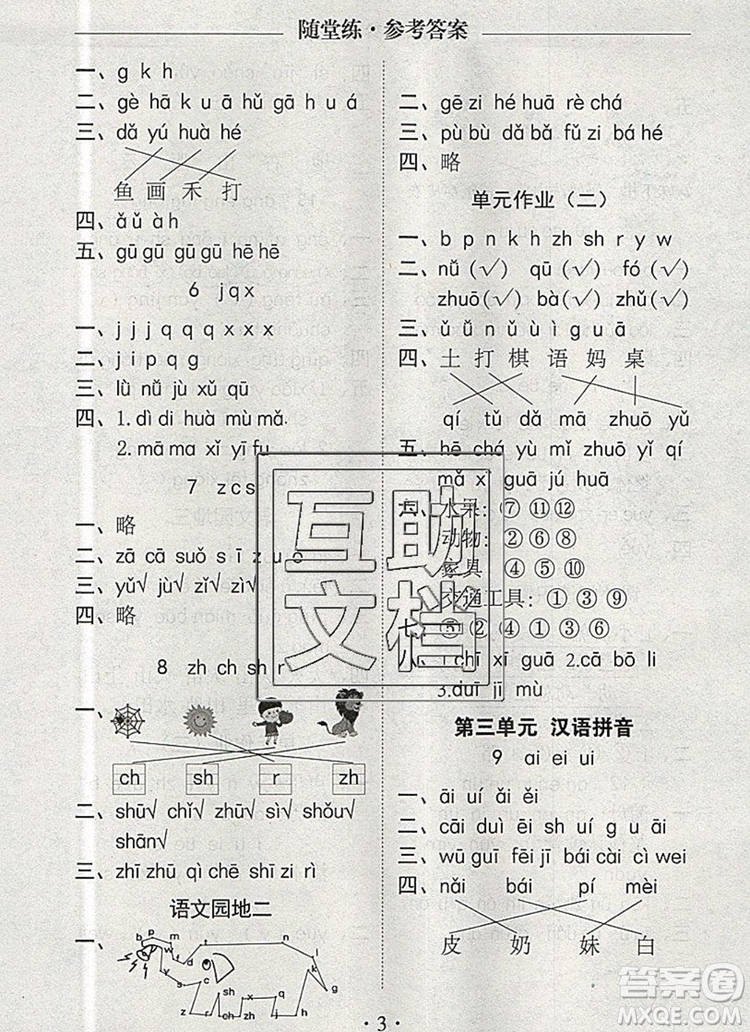 随堂练·参考答案
一、g k h
二、gè hā k u ǎ hǔ g ā h u á
三、dǎ yú huà hé
鱼 画 禾 打
四、ǎ ǔ à h
五、gū gū gū gū hē hē
6 j q x
一、j j j j q q q q x x x x
二、j i p q g
三、lù nǚ jù xǔ qū
四、1.dì di huà mù mǎ
2.mā ma xǐ yī fu
7 z c s
一、略
二、zā cā suǒ s ī z u ǒ
三、yǔ√ jù√ zǐ√ xǐ√
四、略
8 zh ch sh r
一、
ch sh r zh
二、shū√ chǐ√ zhū√ sì√ shǒu√
shān√
三、zhī zhū qì chē shī zi rì
语文园地二
一、
b p m f t n l g k h j q x zh ch sh r z c s
二、gē zi hé huā rè chá
三、pù bù dǎ bǎ fǔ zi bá hé
四、略
单元作业（二）
一、b p n k h zh sh r y w
二、nǔ（√） qū（√） fó（√）
zhuō（√） bà（√） zhǔ（√）
三、ǔ ǔ n ǔ ù ì g u ā
四、土 打 棋 语 妈 桌
qí tǔ dǎ mā zhuō yǔ
五、hē chá yù mǐ zhuō zi qí
mǎ xī guā jú huā
六、水果：⑦ ⑪ ⑫
动物：② ⑥ ⑧
家具 ④ ⑤ ⑩
交通工具：① ③ ⑨
七、⑤ ② ④ ① ⑥ ③
八、1.chī xī guā 2.bō li
3.duī jī mù
第三单元 汉语拼音
9 ai ei ui
一、āi uí ǎi ěi
二、cāi duì ēi sh uí g u āi
三、wū guī fēi jī bái cài cì wei
四、nǎi bái pí mèi
皮 奶 妹 白
互助文档
答案圈
·3·